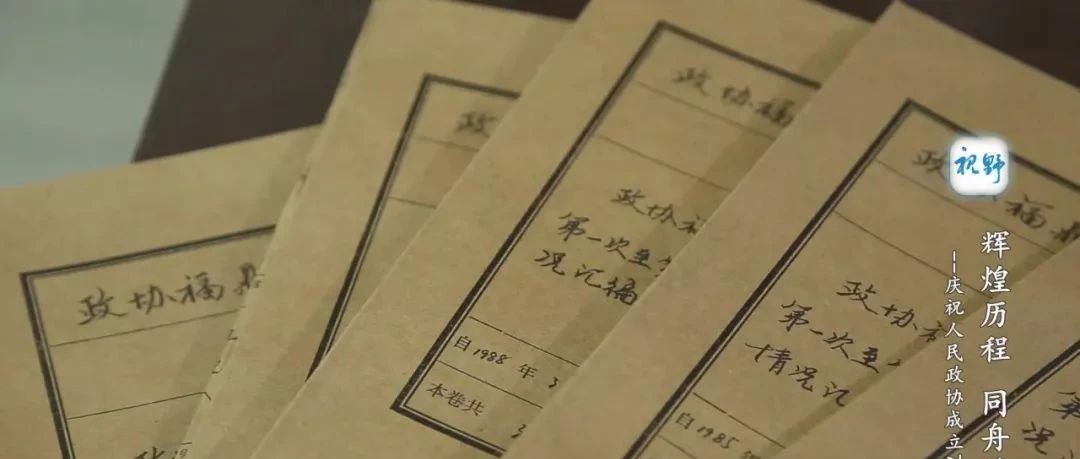 政协福鼎
政
政协福
政协福
第一次至
况汇编
自1988年3
本卷共
政 福鼎
政协福
第一次至
情况汇
自1985年
第
况
视野
辉煌历程 同舟
--庆祝人民政协成立